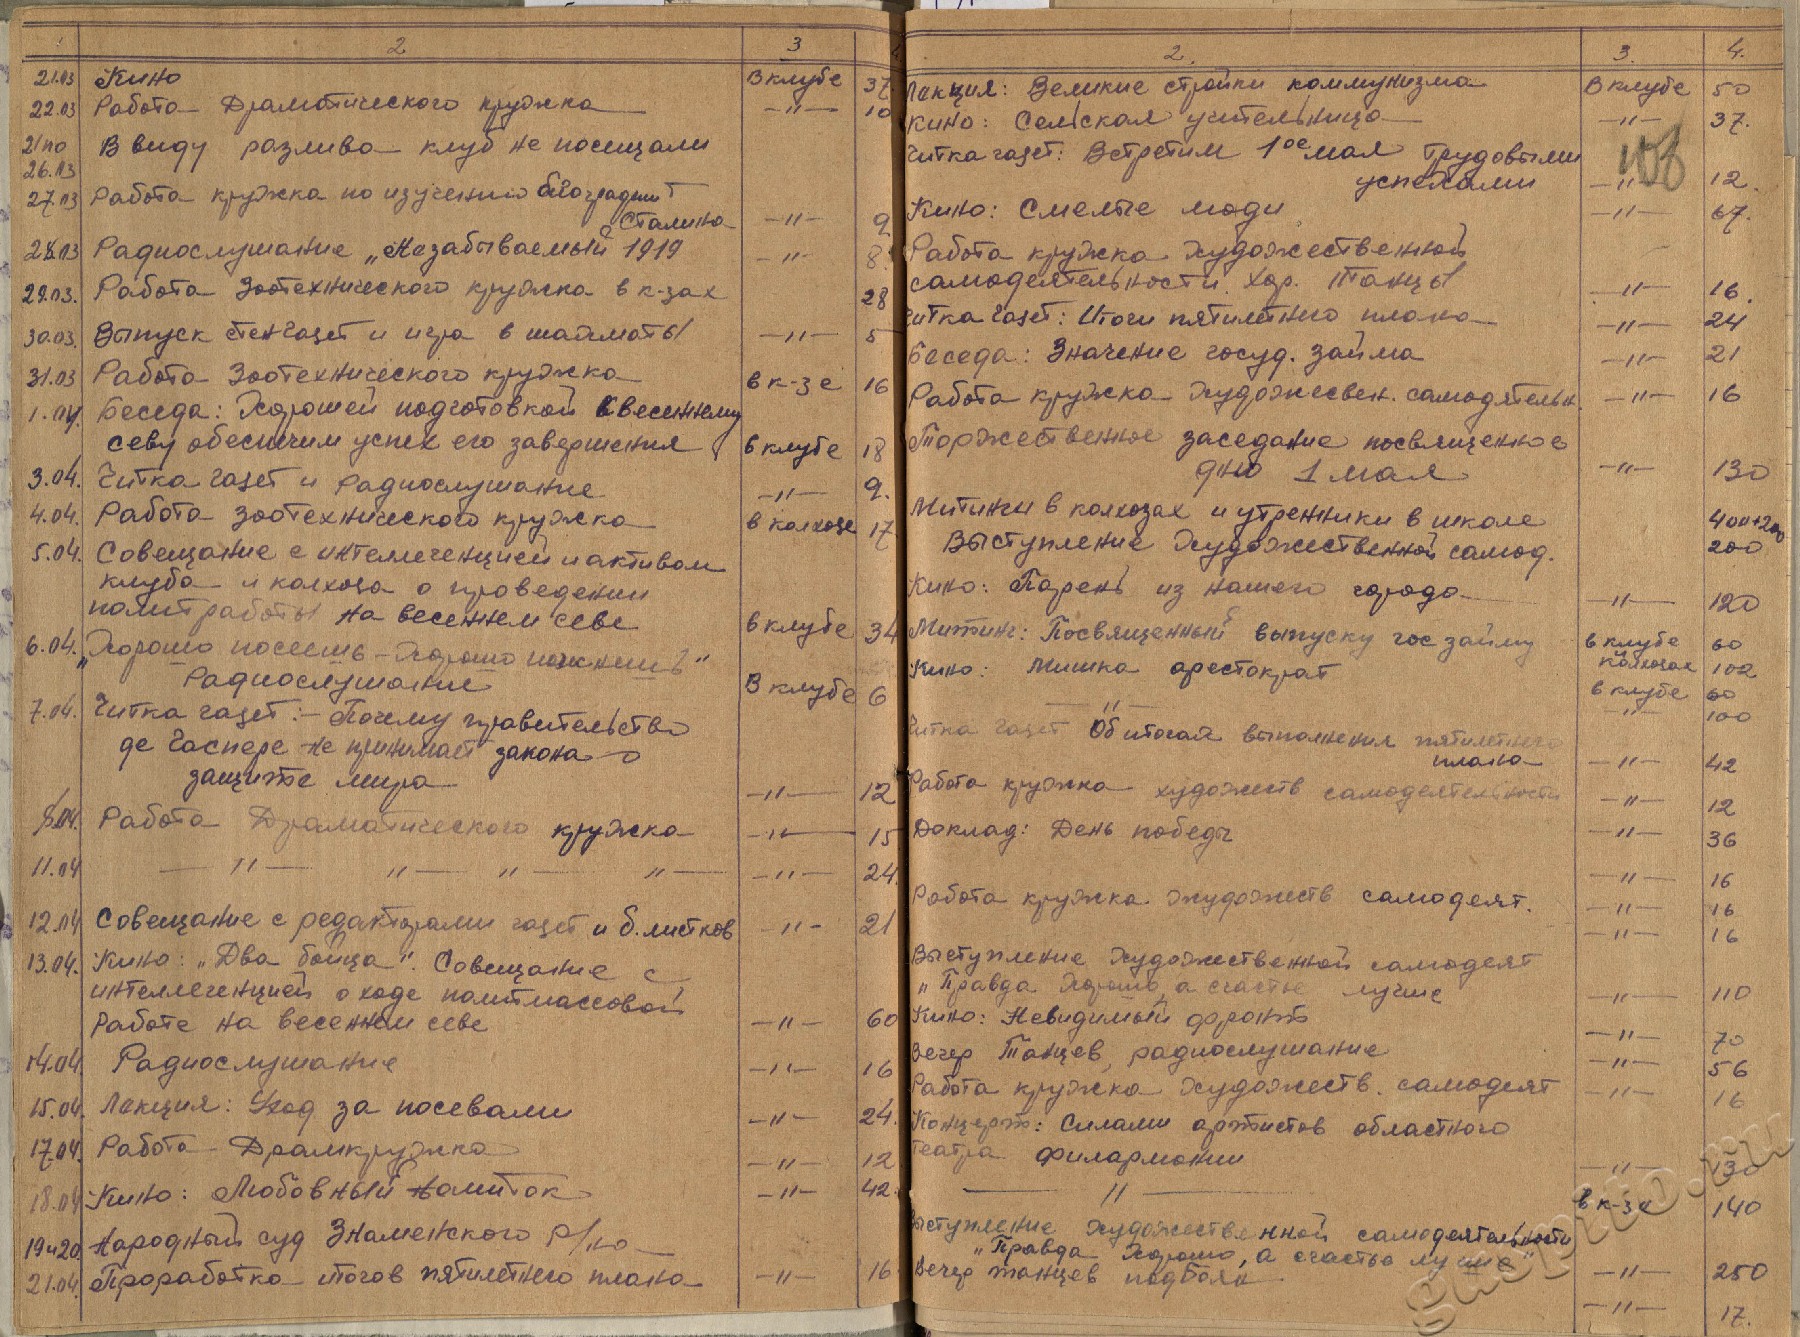 2 3
21.03 Кино В клубе 37
22.03 Работа Драматического кружка —"— 10
21 по В виду разлива клуб не посещали
26.03
27.03 Работа кружка по изучению биографии
Сталина —"— 9
28.03 Радиослушание „Незабываемый 1919 —"— 8
29.03. Работа Зоотехнического кружка в к-зах 28
30.03. Выпуск стенгазет и игра в шахматы —"— 5
31.03 Работа Зоотехнического кружка в к-зе 16
1.04. Беседа: Хорошей подготовкой к весеннему
севу обеспечим успех его завершения в клубе 18
3.04. Читка газет и радиослушание —"— 9.
4.04. Работа зоотехнического кружка в колхозе 17
5.04. Совещание с интеллегенцией и активом
клуба и колхоза о проведении
политработы на весеннем севе в клубе 34
6.04. „Хорошо посеешь – Хорошо пожнешь"
Радиослушание В клубе 6
7.04. Читка газет: – Почему правительство
де Гаспере не принимает закона о
защите мира —"— 12
8.04. Работа Драматического кружка —"— 15
11.04 —"— —"— —"— —"— —"— 24.
12.04 Совещание с редакторами газет и б. листков —"— 21
13.04. Кино: „Два бойца". Совещание с
интеллегенцией о ходе политмассовой
Работе на весеннем севе —"— 60
14.04 Радиослушание —"— 16
15.04. Лекция: Уход за посевами —"— 24.
17.04. Работа Драмкружка —"— 12
18.04 Кино: Любовный напиток —"— 42.
19 и 20 Народный суд Знаменского р/на
21.04. Проработка итогов пятилетнего плана —"— 16
2. 3. 4.
Лекция: Великие стройки коммунизма В клубе 50
Кино: Сельская учительница —"— 37.
Читка газет: Встретим 1ое мая трудовыми
успехами —"— 12.
Кино: Смелые люди —"— 67.
Работа кружка художественной
самодеятельности. Хор. Танцы —"— 16.
Читка газет: Итоги пятилетнего плана —"— 24
Беседа: Значение госуд. займа —"— 21
Работа кружка художесвен. самодятельн. —"— 16
Торжественное заседание посвященное
дню 1 мая —"— 130
Митинги в колхозах и утренники в школе 400+200
Выступление художественной самод. 200
Кино: Парень из нашего города —"— 120
Митинг: Посвященный выпуску гос займу в клубе 60
колхозах 102
Кино: Мишка арестократ в клубе 60
—"— —"— 100
Читка газет Об итогах выполнения пятилетнего
плана —"— 42
Работа кружка художеств самодеятельности —"— 12
Доклад: День победы —"— 36
—"— 16
Работа кружка художеств самодеят. —"— 16
—"— 16
Выступление художественной самодеят
„Правда хорошо, а счастье лучше —"— 110
Кино: Невидимый фронт —"— 70
Вечер Танцев, радиослушание —"— 56
Работа кружка художеств. самодеят —"— 16
Концерт: Силами артистов областного
театра филармонии —"— 130
—"— в к-зе 140
Выступление художественной самодеятельности
„Правда хорошо, а счастье лучше" —"— 250
Вечер танцев под баян —"— 17.